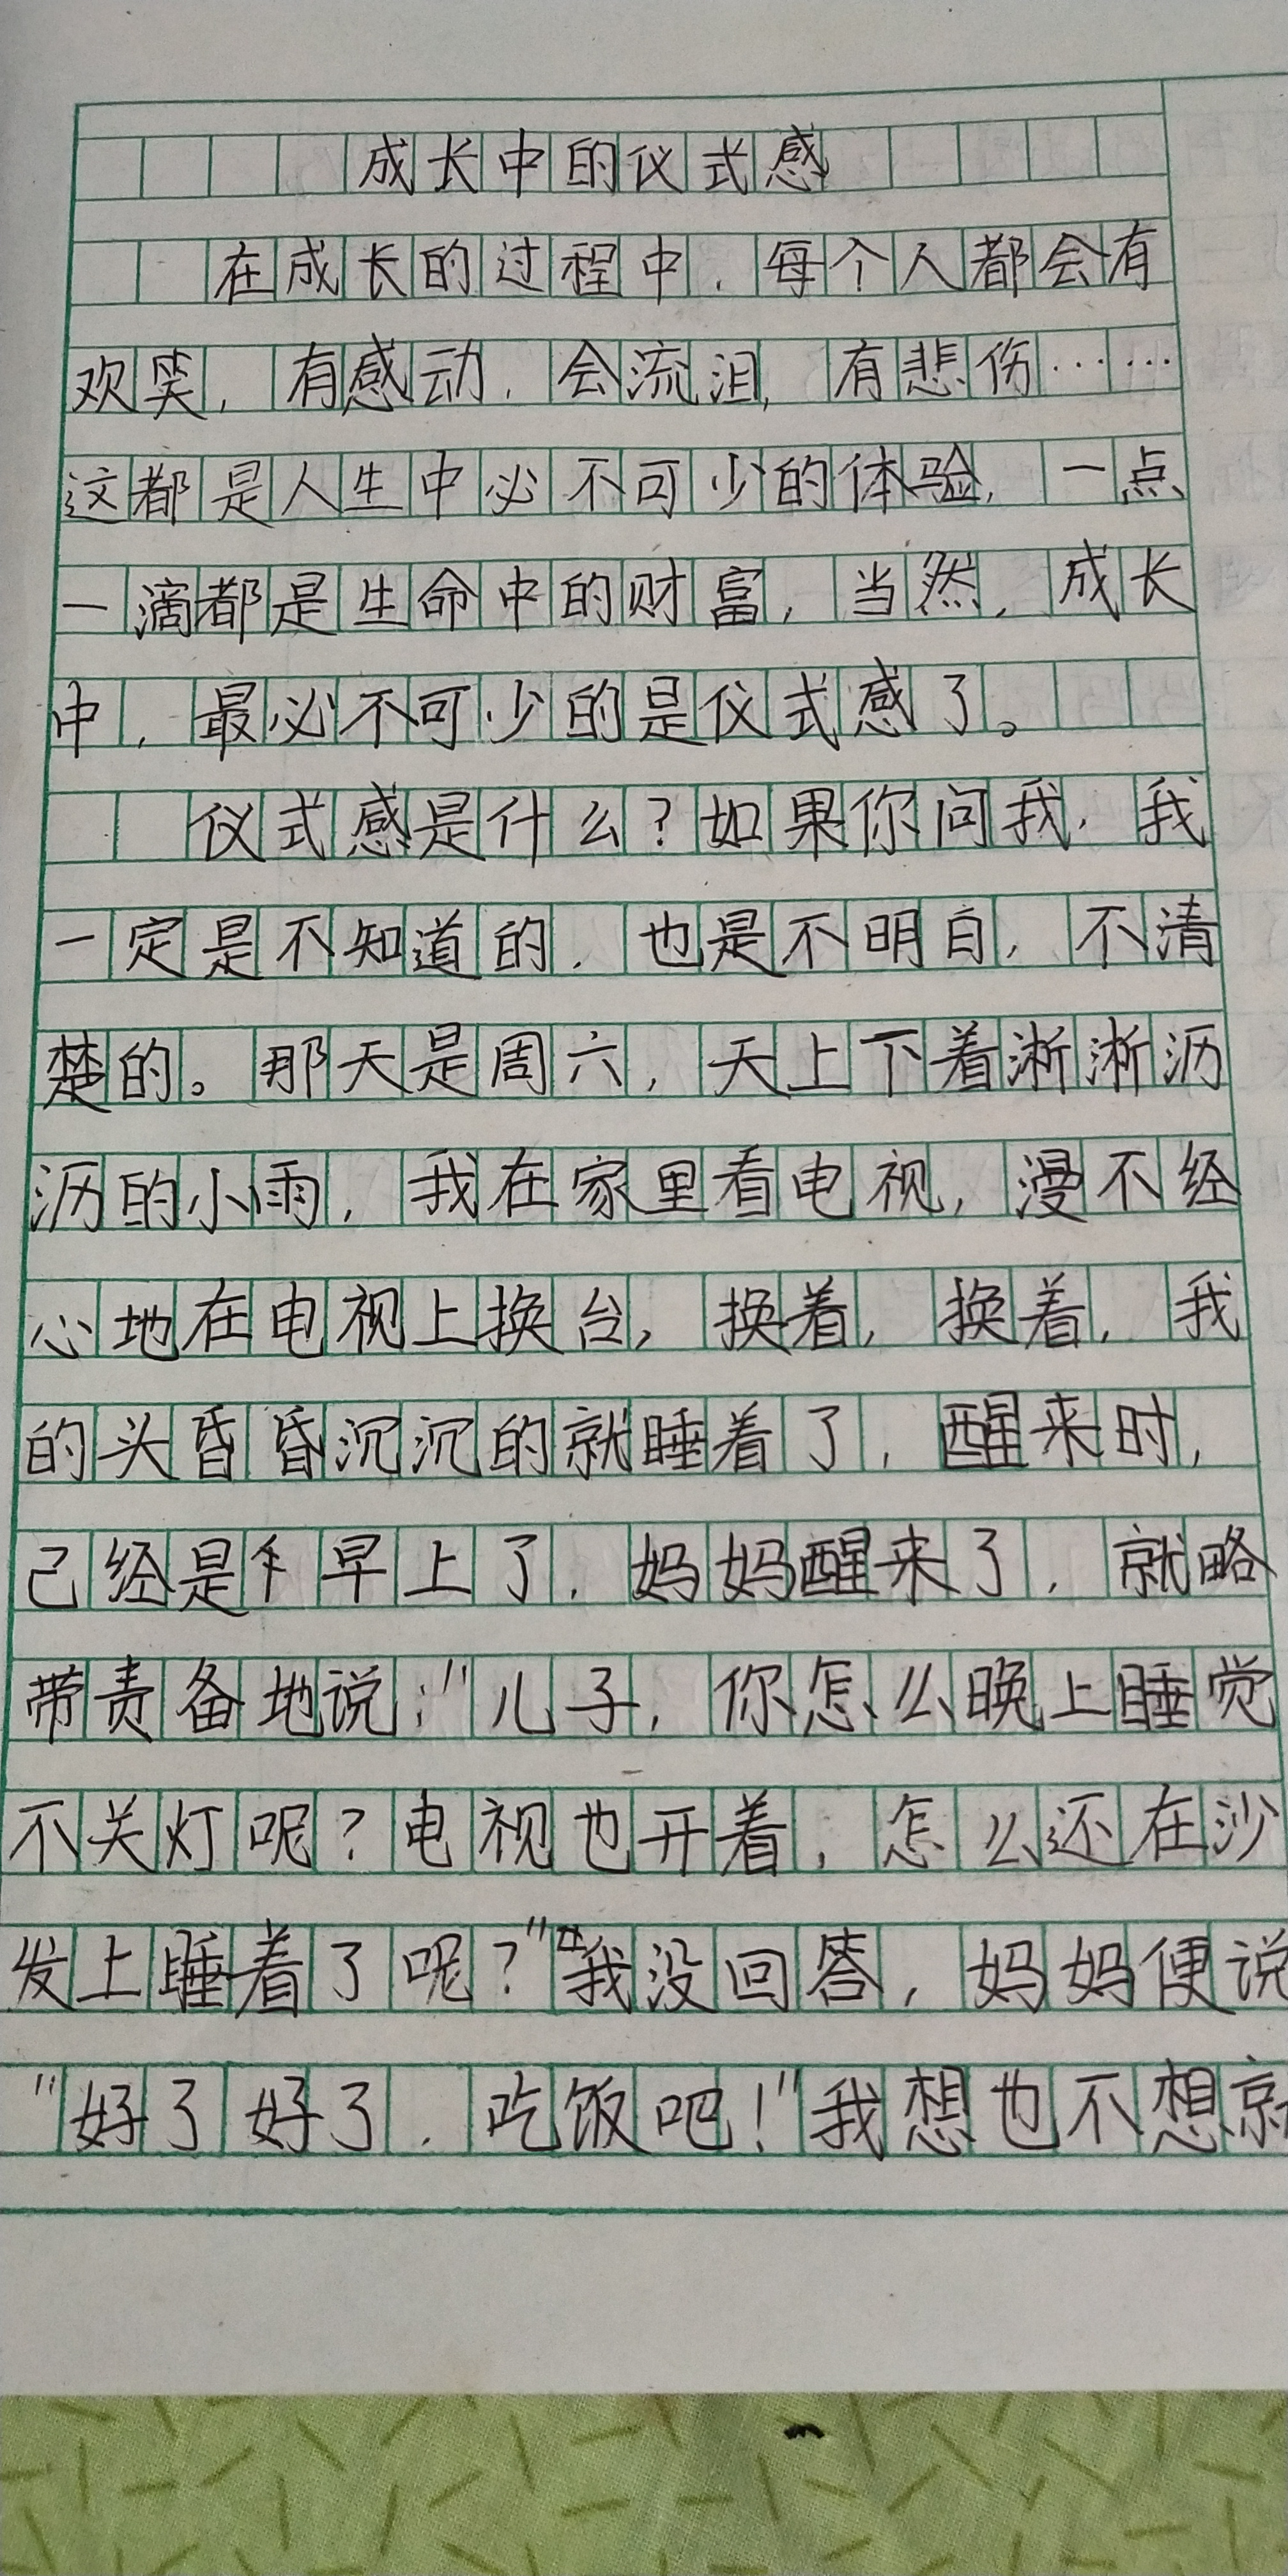 成长中的仪式感
在成长的过程中，每个人都会有
欢笑，有感动，会流泪，有悲伤……
这都是人生中必不可少的体验，一点
一滴都是生命中的财富，当然，成长
中，最必不可少的是仪式感了。
仪式感是什么？如果你问我，我
一定是不知道的，也是不明白，不清
楚的。那天是周六，天上下着淅淅沥
沥的小雨，我在家里看电视，漫不经
心地在电视上换台，换着，换着，我
的头昏昏沉沉的就睡着了，醒来时，
已经是早上了，妈妈醒来了，就略
带责备地说："儿子，你怎么晚上睡觉
不关灯呢？电视也开着，怎么还在沙
发上睡着了呢？"我没回答，妈妈便说
"好了好了，吃饭吧！"我想也不想就